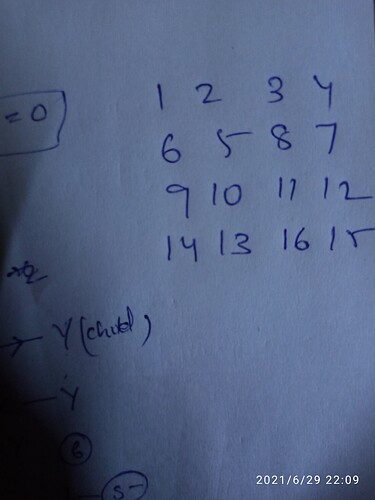 1 2 3 4
= 0
6 5 8 7
9 10 11 12
14 13 16 15
Y (child)
Y
6
5
2021/6/29 22:09